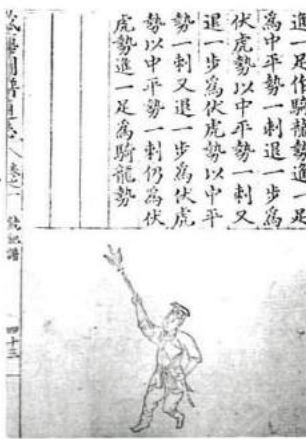 進一足作騎龍勢進一足
為中平勢一刺退一步為
伏虎勢以中平勢一刺又
退一步為伏虎勢以中平
勢一刺又退一步為伏虎
勢以中平勢一刺仍為伏
虎勢進一足為騎龍勢
武藝圖譜通志 卷之一 四十三